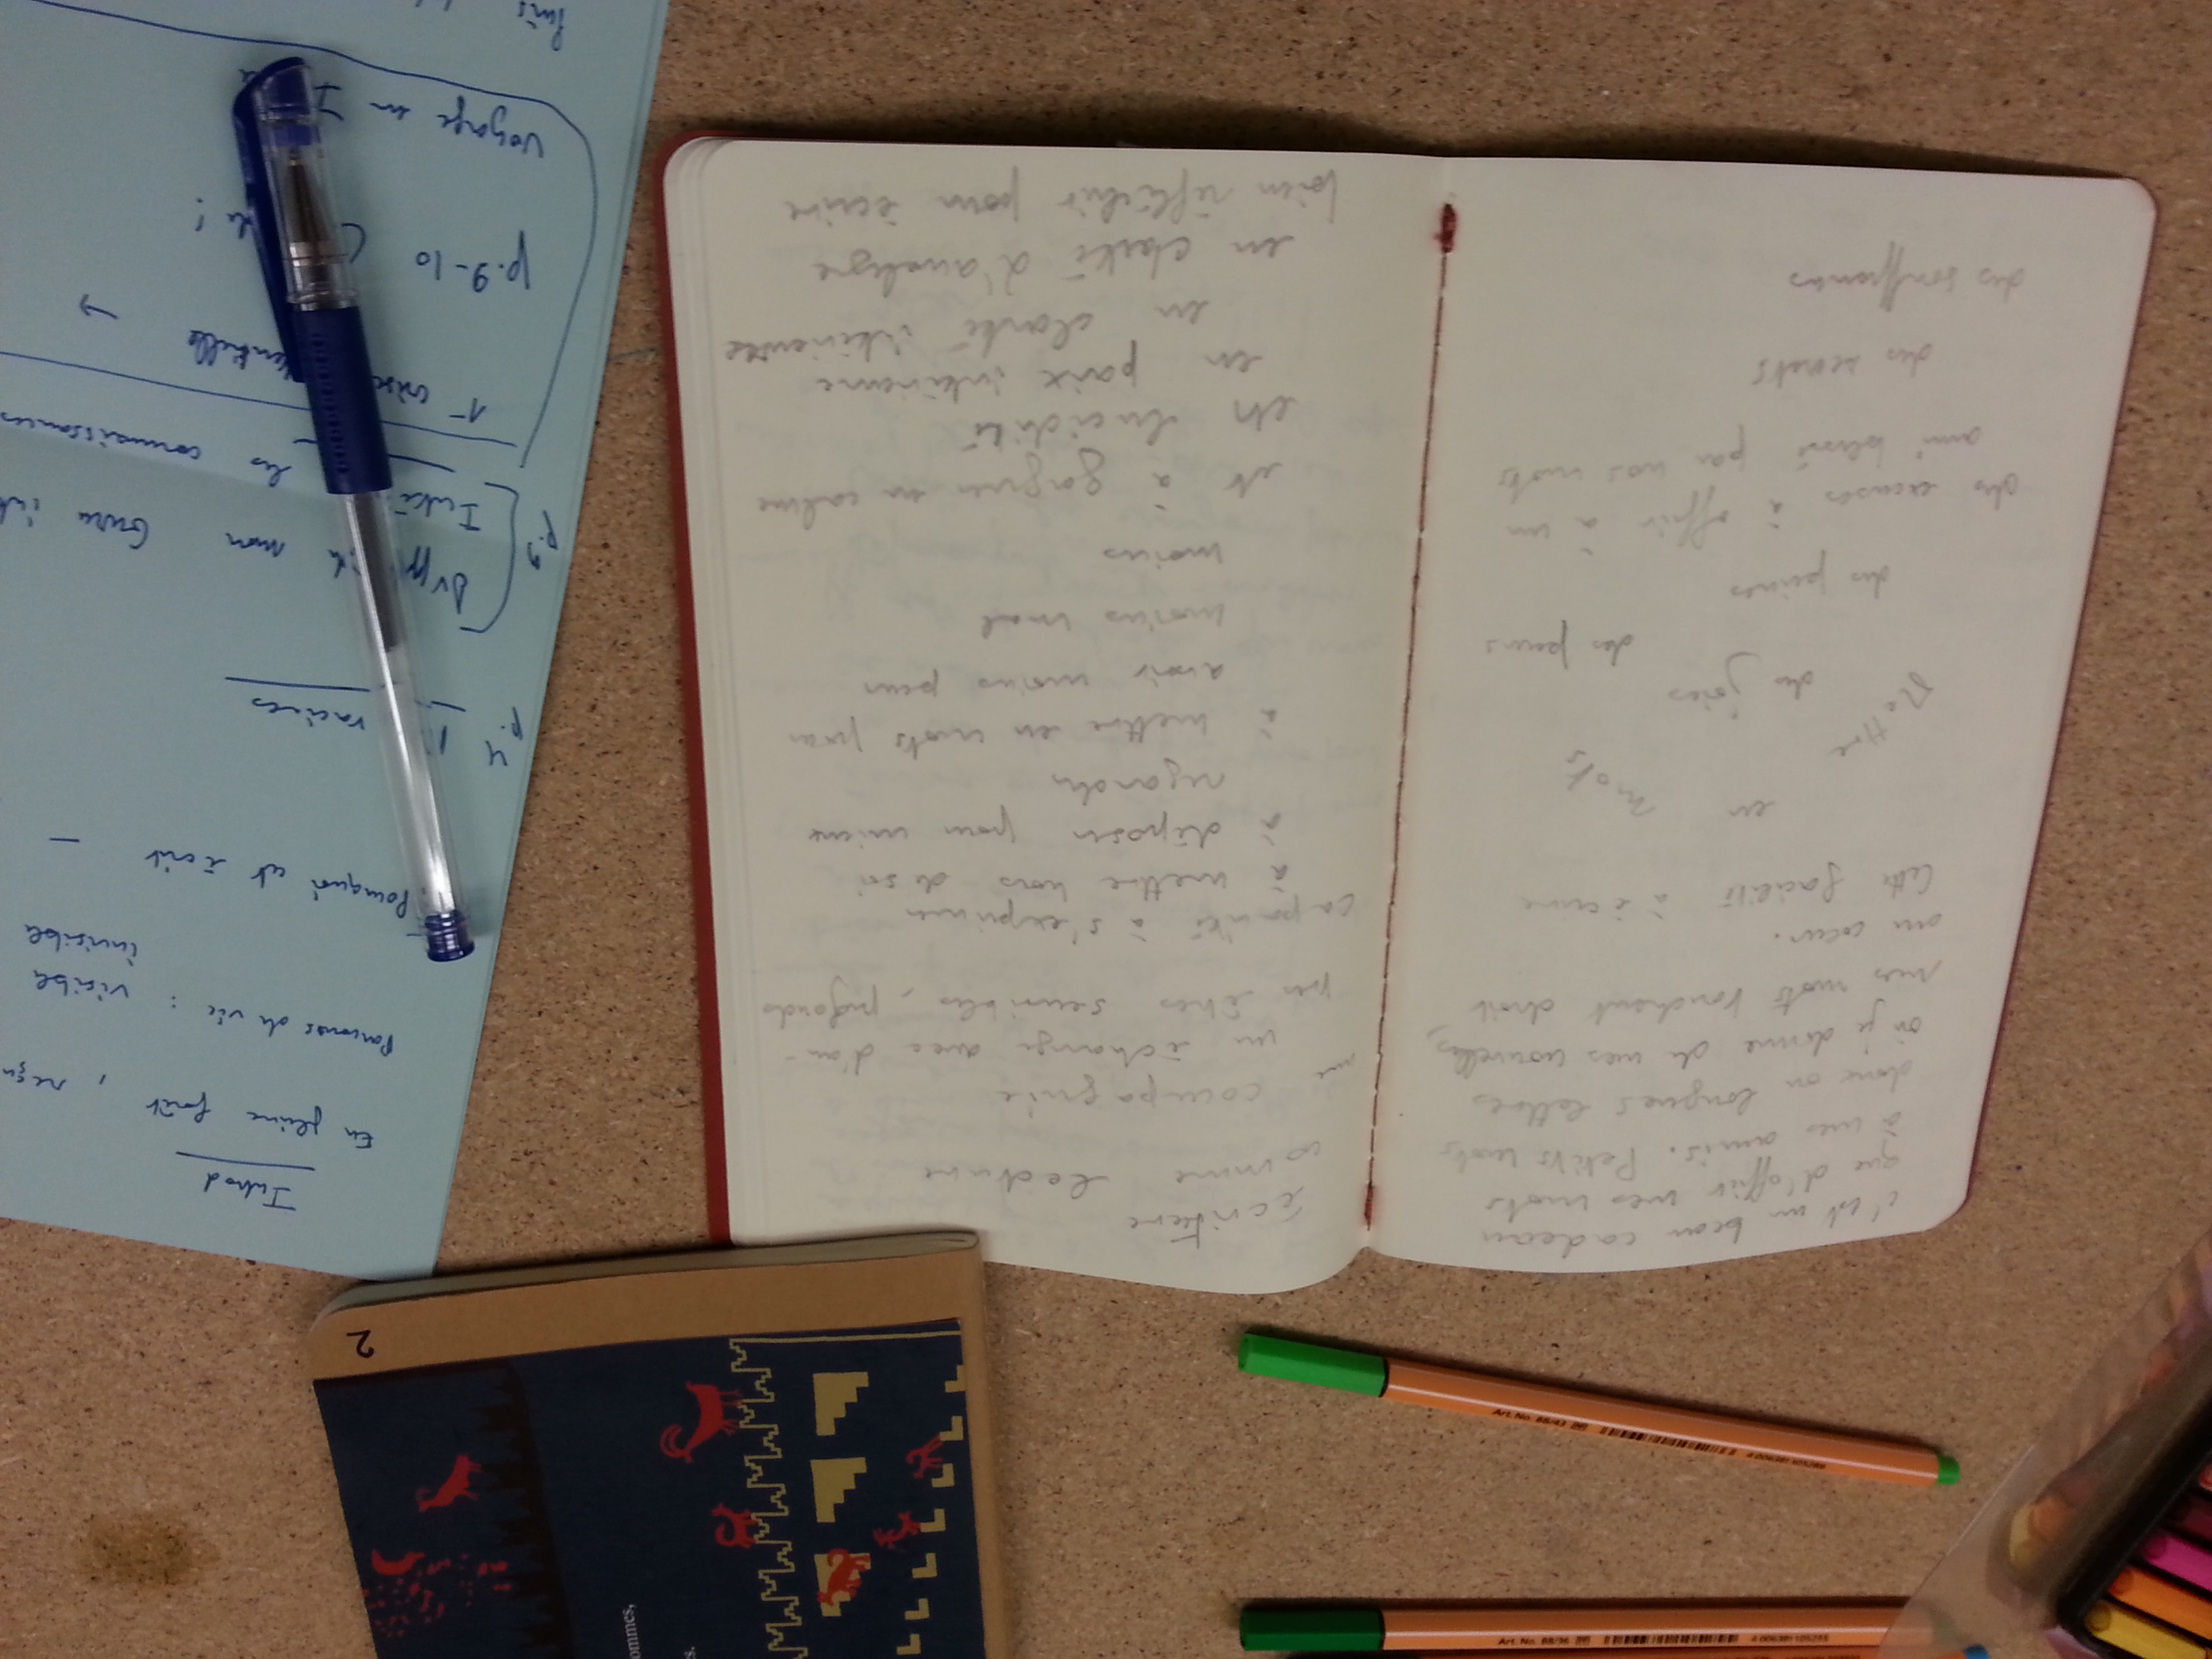 c'est un beau cadeau
que d'offrir mes mots
à mes amis. Petits mots
donc ou longues lettres
où je donne de mes nouvelles,
mes mots tombent droit
au coeur.
Cette facilité à écrire
Mettre en mots
des joies
des peurs
des peines
des excuses à offrir à un
ami blessé par nos mots
des secrets
des souffrances
Écriture
comme lecture
une compagnie
un échange avec d'au-
êtres sensibles, profonds
capacité à s'exprimer
à mettre hors de soi
à déposer pour mieux
regarder
à mettre en mots pour
avoir moins peur
moins mal
moins
et à gagner en calme
en lucidité
en paix intérieure
en clarté intérieure
en clarté d'analyse
bien réfléchir pour écrire
Introd
En pleine forêt, reçu
Parcours de vie : visible
invisible
Pourquoi cet écrit —
p. 4 racines
p. 9
Dvpp mon Guru int
Inté les connaissances
1º crise →
p. 9-10
Voyage en I
Puis
2
ommes,
s.
Art. No. 88/43
Art. No. 88/36